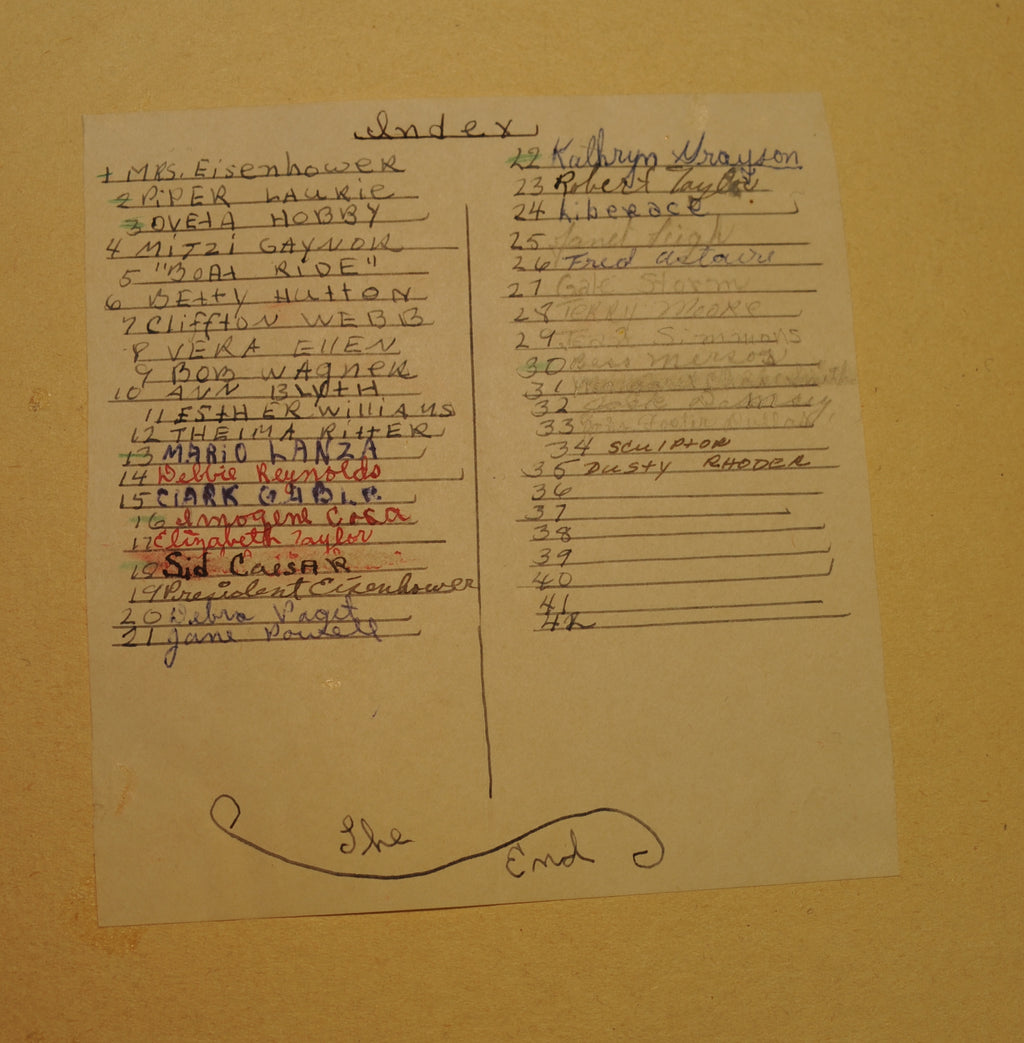 Index
1 MRS. Eisenhower
2 PiPER LAURIE
3 OVETA HOBBY
4 MiTZi GAYNOR
5 "BOAt RIDE"
6 BEttY HUTTON
7 Cliffton WEBB
8 VERA EllEN
9 BOB WAGNER
10 ANN BLYTH
11 ESTHER WilliAMS
12 THElMA RitTER
13 MARiO LANZA
14 Debbie Reynolds
15 ClARK GABLE
16 Imogene Coca
17 Elizabeth Taylor
18 Sid CAESAR
19 President Eisenhower
20 Debra Paget
21 Jane Powell
22 Kathryn Grayson
23 Robert Taylor
24 Liberace
25 Janet Leigh
26 Fred Astaire
27 Gale Storm
28 TERRY MOORE
29 Jean Simmons
30 Bess
31 Margaret
32
33
34 SCUlPTOR
35 DUSTY RHODER
36
37
38
39
40
41
42
The End